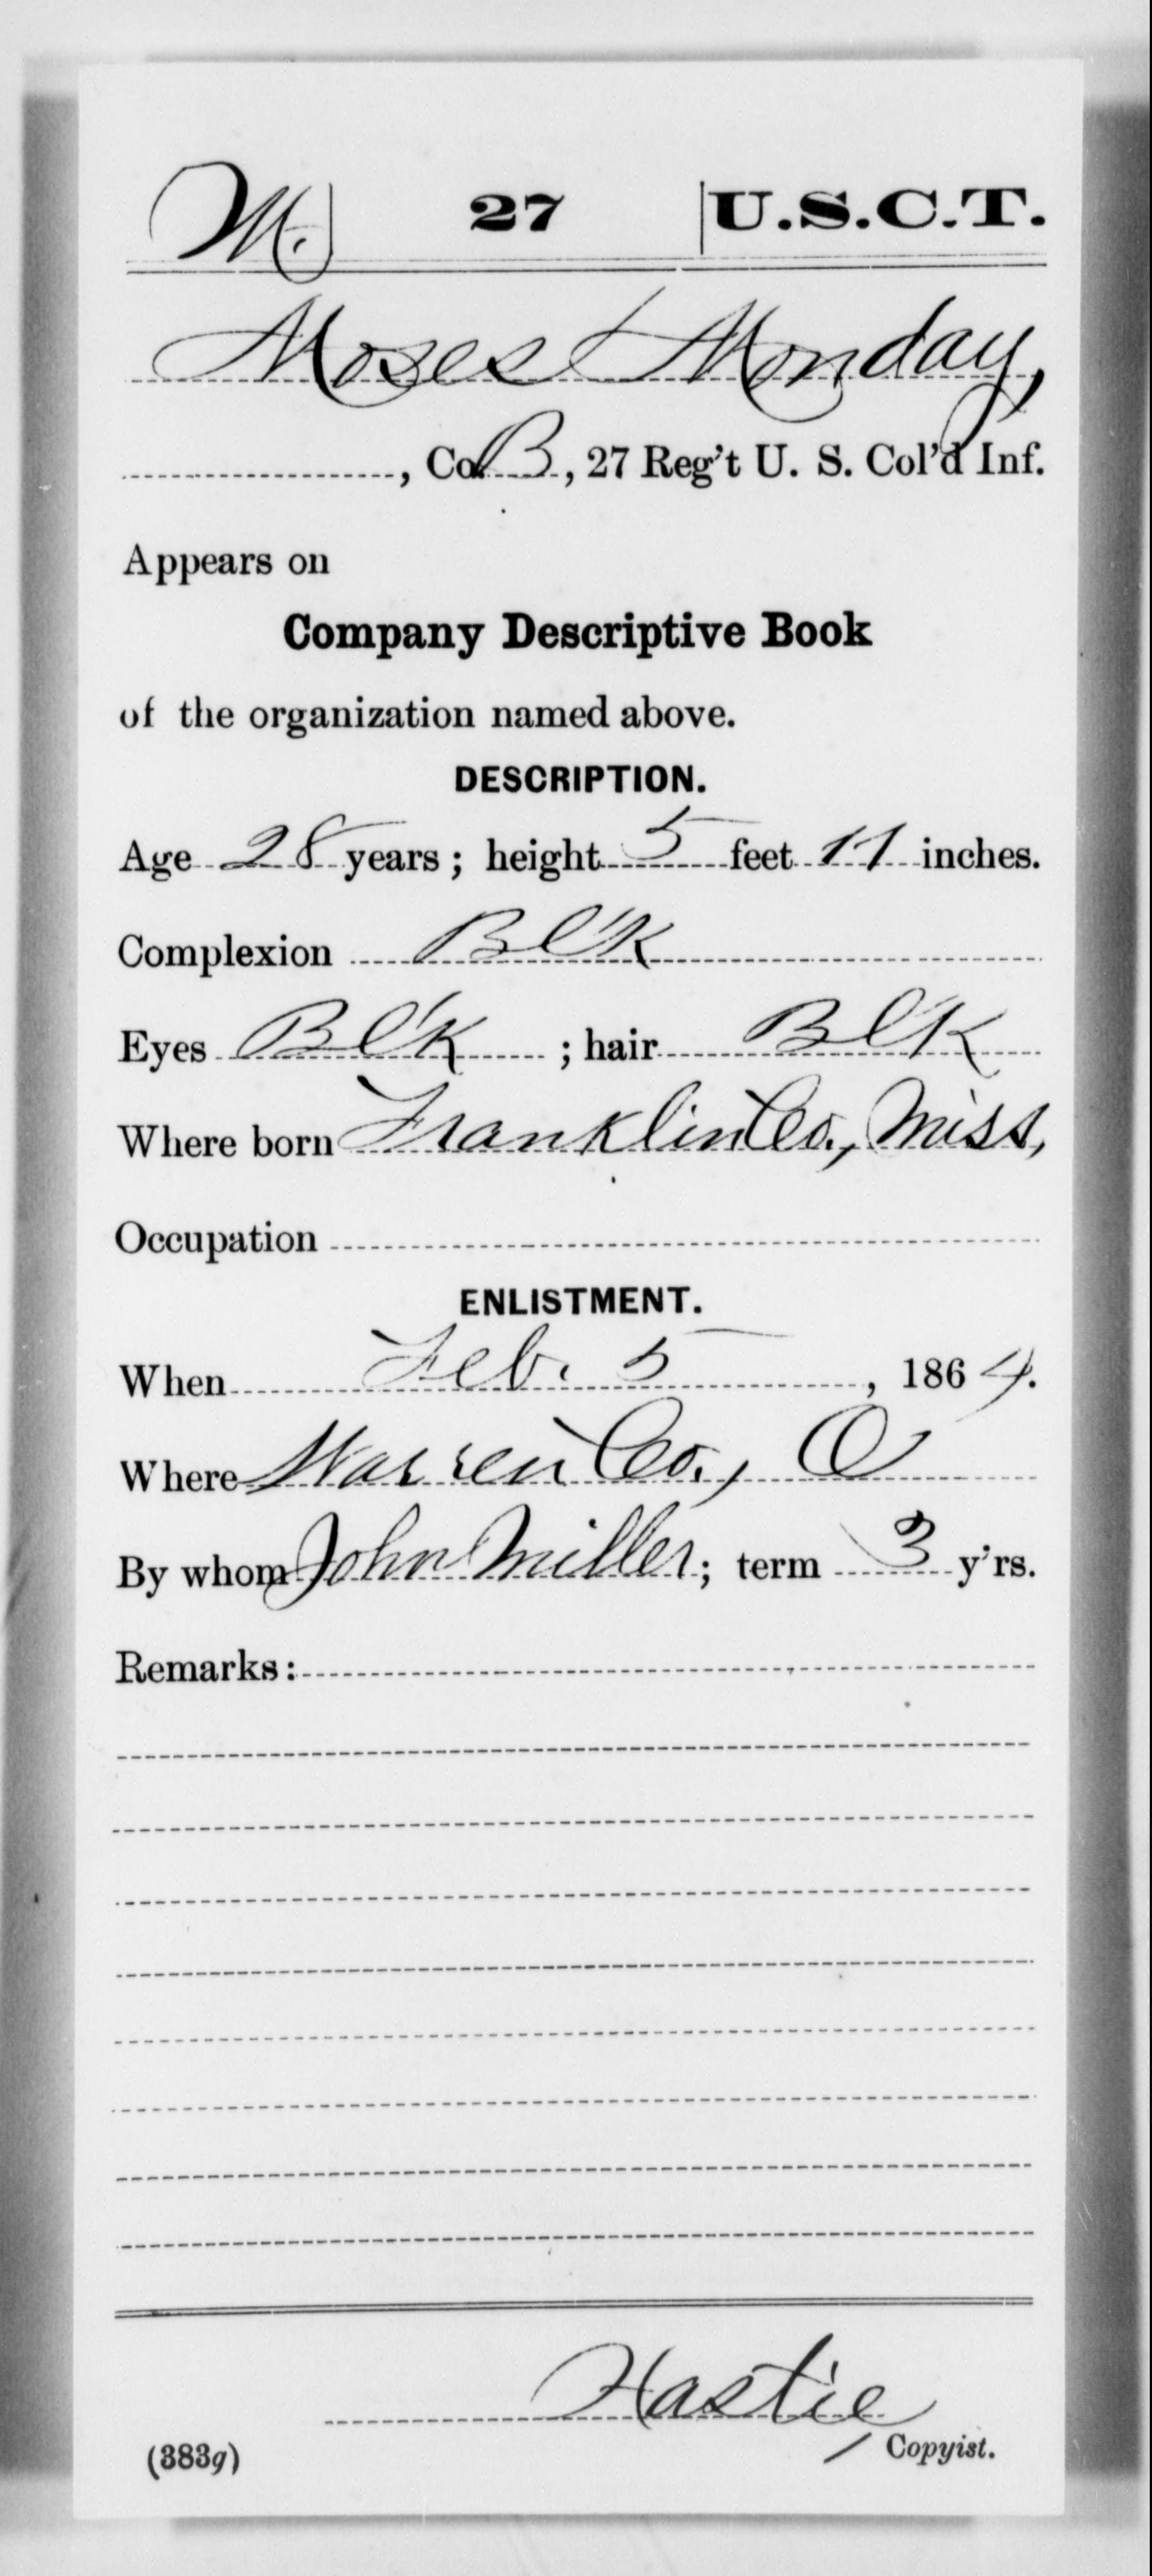 M. 27 U.S.C.T.
Moses Monday,
, Co. B, 27 Reg't U. S. Col'd Inf.
Appears on
Company Descriptive Book
of the organization named above.
DESCRIPTION.
Age 28 years; height 5 feet 11 inches.
Complexion Bl'k
Eyes Bl'k; hair Bl'k
Where born Franklin Co., Miss,
Occupation
ENLISTMENT.
When Feb. 5, 1864.
Where Warren Co., O
By whom John Miller; term 3 y'rs.
Remarks:
Hastie
(383g) Copyist.